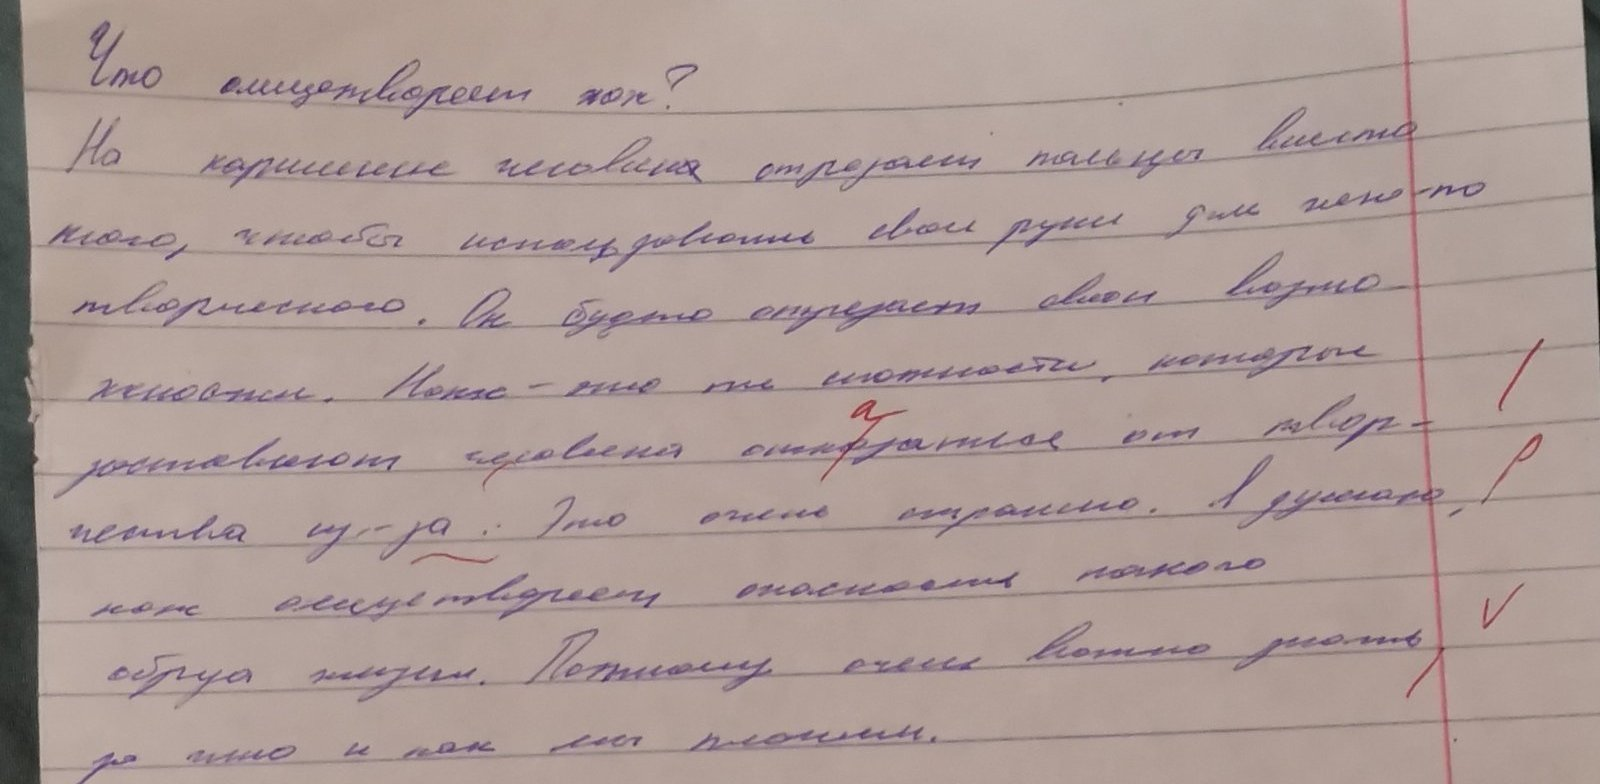 Что олицетворяет нож?
На картине человека отрезает пальцы вместо
того, чтобы использовать свои руки для чего-то
творческого. Он будто отрезает свои возмо-
жности. Нож - это те сложности, которые
заставляют человека отказаться от твор-
чества из-за . Это очень страшно. Я думаю,
нож олицетворяет опасность такого
образа жизни. Поэтому очень важно знать
за что и как мы платим.